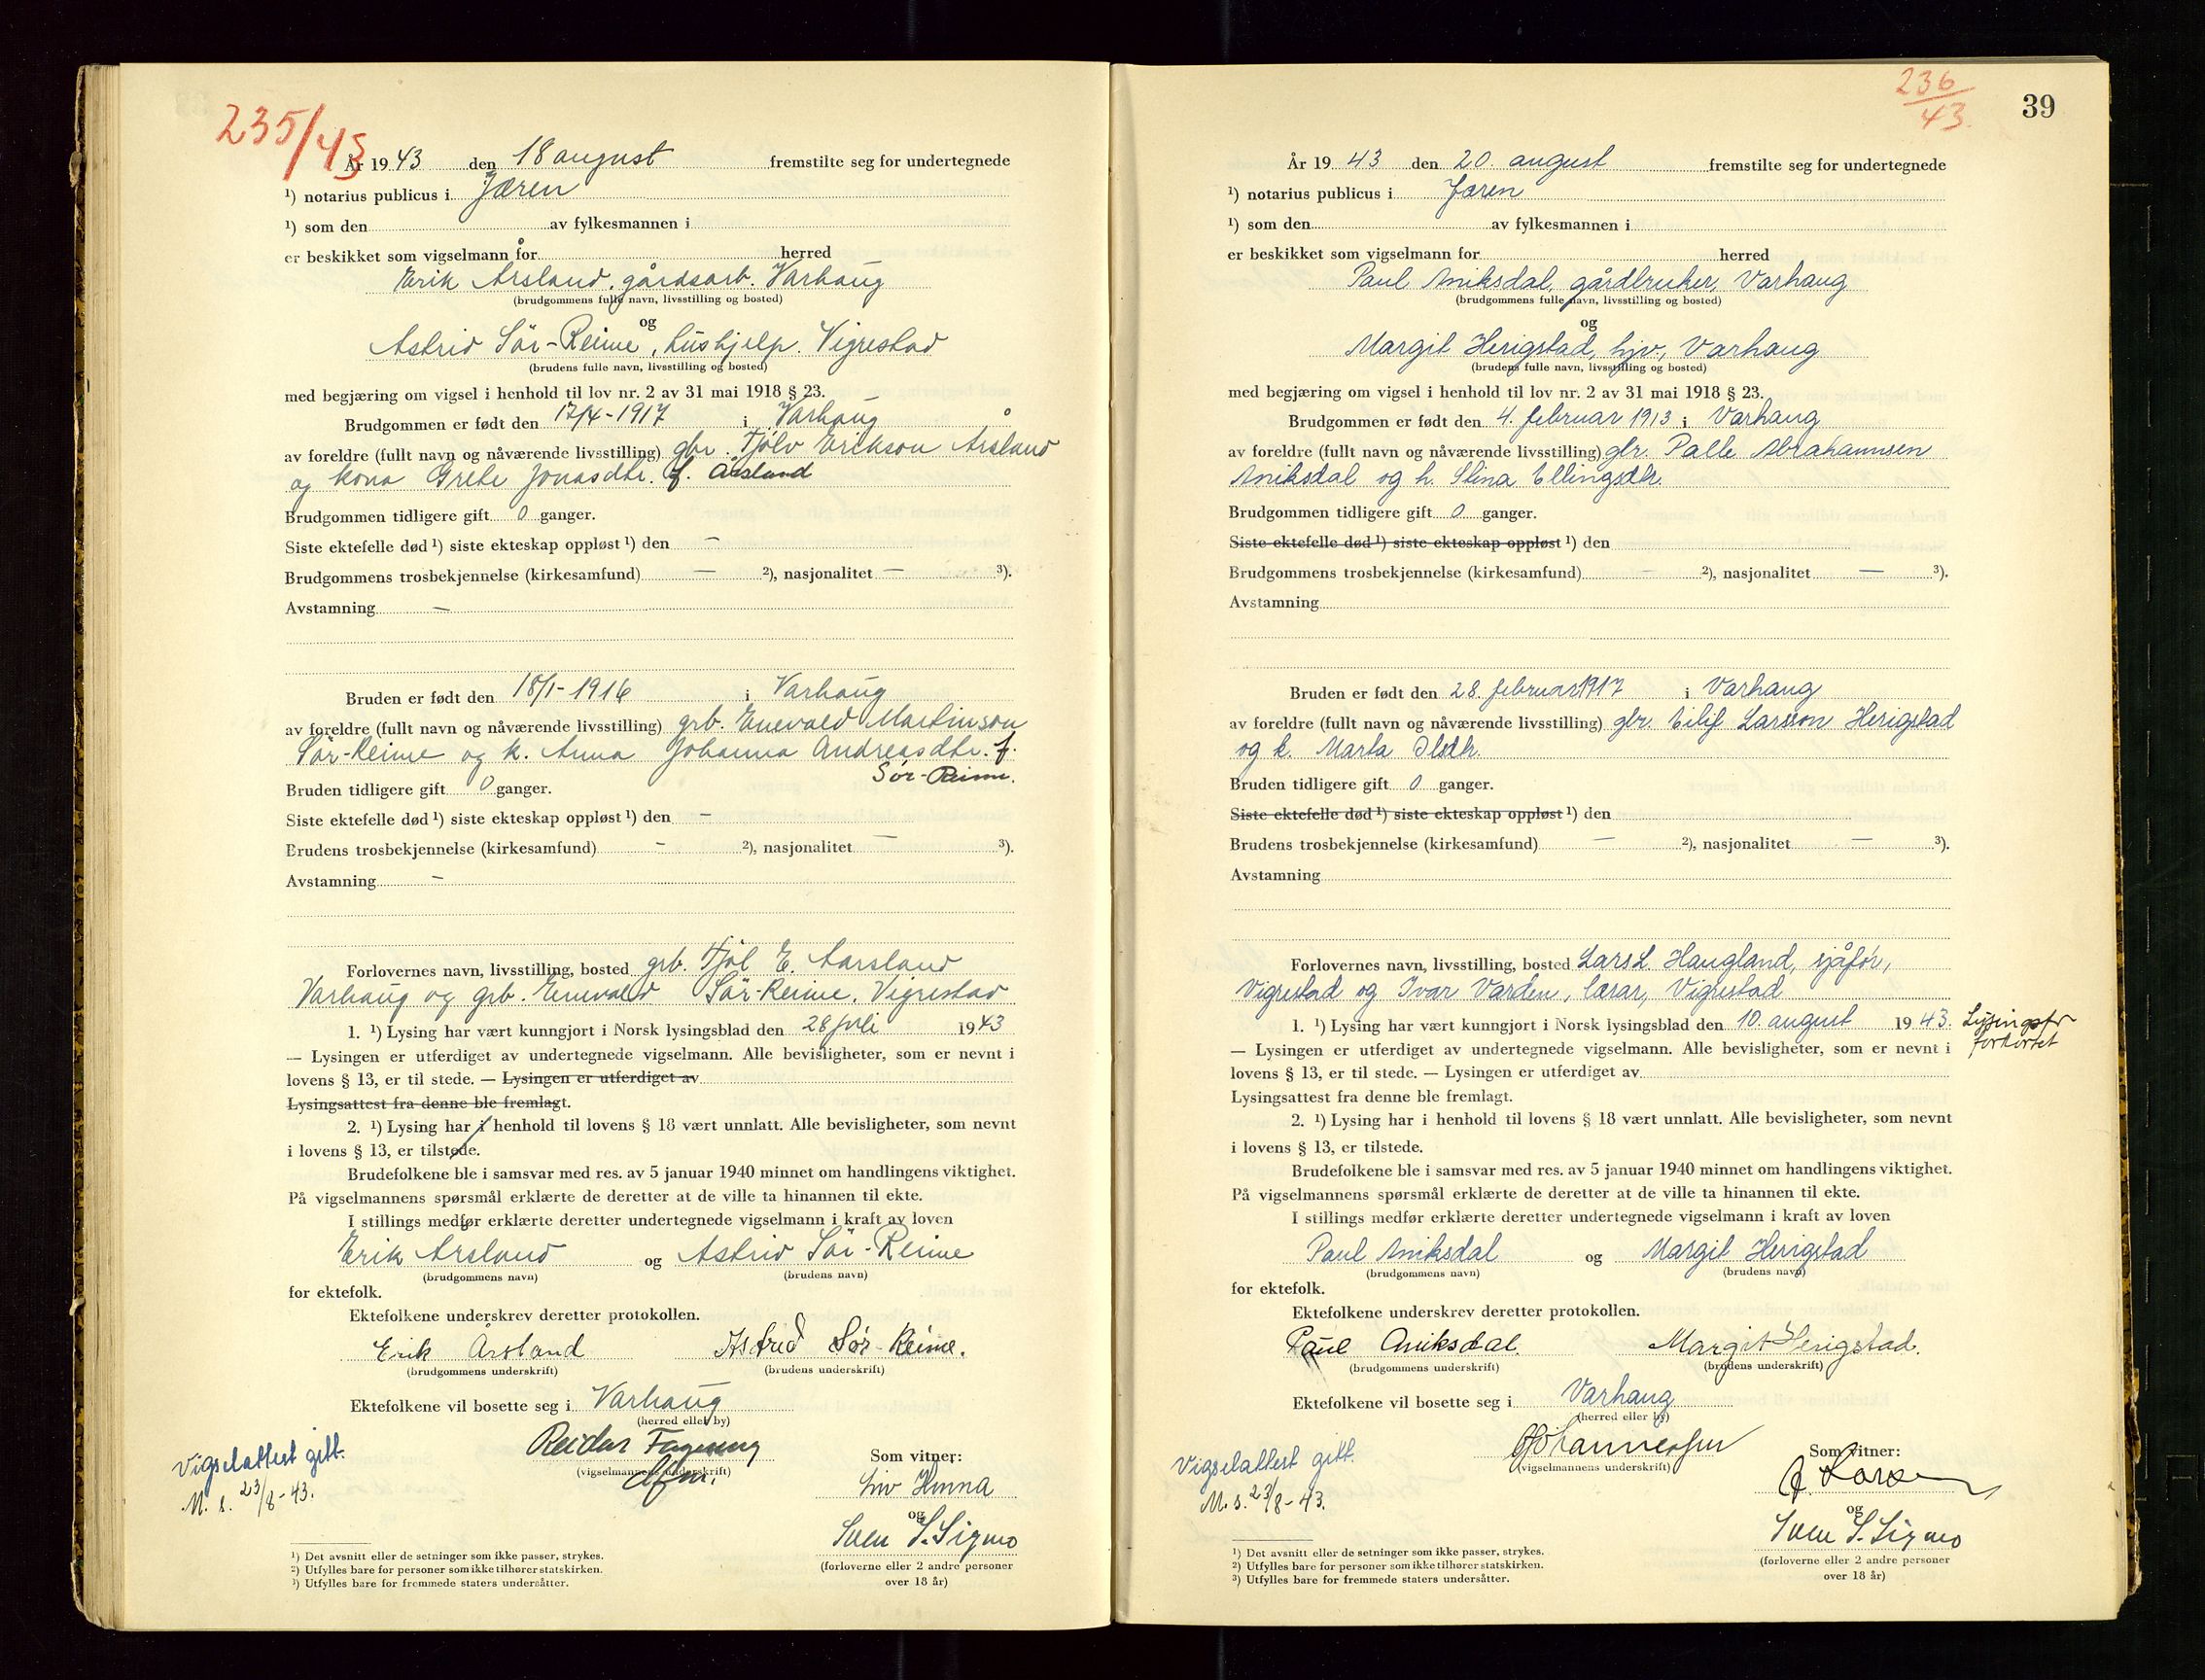 235/43
År 1943 den 18 august fremstilte seg for undertegnede
¹) notarius publicus i Jæren
¹) som den av fylkesmannen i
er beskikket som vigselmann for herred
Erik Årsland, gårdsarb. Varhaug
(brudgommens fulle navn, livsstilling og bosted)
og
Astrid Sör-Reime, hushjelp. Vigrestad
(brudens fulle navn, livsstilling og bosted)
med begjæring om vigsel i henhold til lov nr. 2 av 31 mai 1918 § 23.
Brudgommen er født den 17/4-1917 i Varhaug
av foreldre (fullt navn og nåværende livsstilling) gbr. Tjölv Erikson Årsland
og kona Grete Jonasdtr. f. Årsland
Brudgommen tidligere gift 0 ganger.
Siste ektefelle død ¹) siste ekteskap oppløst ¹) den –
Brudgommens trosbekjennelse (kirkesamfund) — ²), nasjonalitet — ³).
Avstamning —
Bruden er født den 18/1-1916 i Varhaug
av foreldre (fullt navn og nåværende livsstilling) grb. Enevald Martinson
Sör-Reime og k. Anna Johanna Andreasdtr. f.
Sør-Reime.
Bruden tidligere gift 0 ganger.
Siste ektefelle død ¹) siste ekteskap oppløst ¹) den –
Brudens trosbekjennelse (kirkesamfund) – ²), nasjonalitet — ³).
Avstamning –
Forlovernes navn, livsstilling, bosted grb. Tjöl E. Aarsland
Varhaug og grb. Enevald Sör-Reime, Vigrestad
1. ¹) Lysing har vært kunngjort i Norsk lysingsblad den 28 juli 1943
— Lysingen er utferdiget av undertegnede vigselmann. Alle bevisligheter, som er nevnt i
lovens § 13, er til stede. — Lysingen er utferdiget av
Lysingsattest fra denne ble fremlagt.
2. ¹) Lysing har i henhold til lovens § 18 vært unnlatt. Alle bevisligheter, som nevnt
i lovens § 13, er tilstede.
Brudefolkene ble i samsvar med res. av 5 januar 1940 minnet om handlingens viktighet.
På vigselmannens spørsmål erklærte de deretter at de ville ta hinannen til ekte.
I stillings medfør erklærte deretter undertegnede vigselmann i kraft av loven
Erik Årsland og Astrid Sör-Reime
(brudgommens navn) (brudens navn)
for ektefolk.
Ektefolkene underskrev deretter protokollen.
Erik Årsland Astrid Sør-Reime.
(brudgommens underskrift) (brudens underskrift)
Ektefolkene vil bosette seg i Varhaug
(herred eller by)
Vigselattest gitt.
M. s. 23/8-43.
Reidar
(vigselmannens underskrift)
Som vitner:
Liv Hinna
og
Sven S. Sigmo
(forloverne eller 2 andre personer
over 18 år)
¹) Det avsnitt eller de setninger som ikke passer, strykes.
²) Utfylles bare for personer som ikke tilhører statskirken.
³) Utfylles bare for fremmede staters undersåtter.
236/43.
39
År 1943 den 20. august fremstilte seg for undertegnede
¹) notarius publicus i Jæren
¹) som den av fylkesmannen i
er beskikket som vigselmann for herred
Paul Aniksdal, gårdbruker, Varhaug
(brudgommens fulle navn, livsstilling og bosted)
og
Margit Herigstad, hjv., Varhaug
(brudens fulle navn, livsstilling og bosted)
med begjæring om vigsel i henhold til lov nr. 2 av 31 mai 1918 § 23.
Brudgommen er født den 4. februar 1913 i Varhaug
av foreldre (fullt navn og nåværende livsstilling) gbr. Palle Abrahamsen
Aniksdal og h. Stina Ellingsdtr.
Brudgommen tidligere gift 0 ganger.
Siste ektefelle død ¹) siste ekteskap oppløst ¹) den
Brudgommens trosbekjennelse (kirkesamfund) — ²), nasjonalitet — ³).
Avstamning
Bruden er født den 28. februar 1917 i Varhaug
av foreldre (fullt navn og nåværende livsstilling) gbr. Eilif Larsson Herigstad
og k. Marta Olsdtr.
Bruden tidligere gift 0 ganger.
Siste ektefelle død ¹) siste ekteskap oppløst ¹) den
Brudens trosbekjennelse (kirkesamfund) — ²), nasjonalitet — ³).
Avstamning
Forlovernes navn, livsstilling, bosted Lars L. Haugland, sjåfør,
Vigrestad og Ivar Varden, lærar, Vigrestad
1. ¹) Lysing har vært kunngjort i Norsk lysingsblad den 10. august 1943. Lysingsfr
forkortet
— Lysingen er utferdiget av undertegnede vigselmann. Alle bevisligheter, som er nevnt i
lovens § 13, er til stede. — Lysingen er utferdiget av
Lysingsattest fra denne ble fremlagt.
2. ¹) Lysing har i henhold til lovens § 18 vært unnlatt. Alle bevisligheter, som nevnt
i lovens § 13, er tilstede.
Brudefolkene ble i samsvar med res. av 5 januar 1940 minnet om handlingens viktighet.
På vigselmannens spørsmål erklærte de deretter at de ville ta hinannen til ekte.
I stillings medfør erklærte deretter undertegnede vigselmann i kraft av loven
Paul Aniksdal og Margit Herigstad
(brudgommens navn) (brudens navn)
for ektefolk.
Ektefolkene underskrev deretter protokollen.
Paul Aniksdal. Margit Herigstad.
(brudgommens underskrift) (brudens underskrift)
Ektefolkene vil bosette seg i Varhaug
(herred eller by)
Vigselattest gitt.
M. s. 23/8-43.
Johannessen
(vigselmannens underskrift)
Som vitner:
og
Sven S. Sigmo
(forloverne eller 2 andre personer
over 18 år)
¹) Det avsnitt eller de setninger som ikke passer, strykes.
²) Utfylles bare for personer som ikke tilhører statskirken.
³) Utfylles bare for fremmede staters undersåtter.